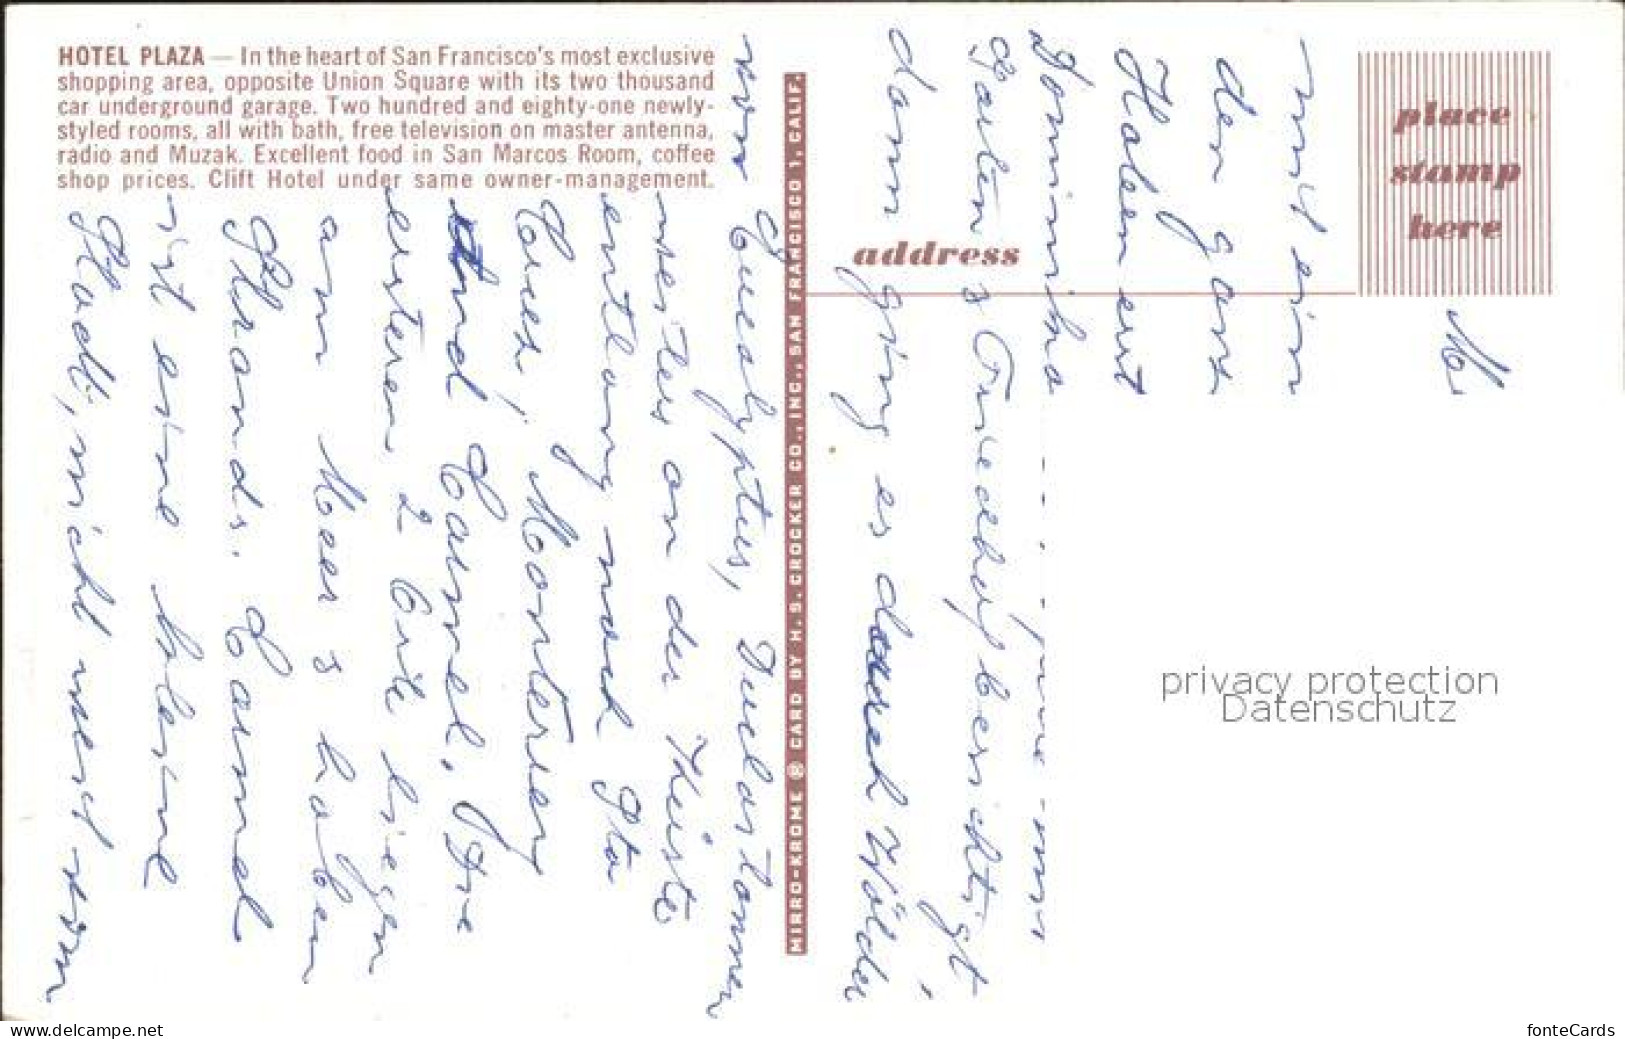 HOTEL PLAZA — In the heart of San Francisco's most exclusive
shopping area, opposite Union Square with its two thousand
car underground garage. Two hundred and eighty-one newly-
styled rooms, all with bath, free television on master antenna,
radio and Muzak. Excellent food in San Marcos Room, coffee
shop prices. Clift Hotel under same owner-management.
MIRRO-KROME ® CARD BY H. S. CROCKER CO., INC., SAN FRANCISCO 1, CALIF.
place
stamp
here
address
mit ein
den ganz
Hafen
Dominika
Garten & Friedhof besichtigt,
dann ging es durch Wälder
von Eucalyptus,
weiter an der Küste
entlang nach Sta
Cruz, Monterey
und Carmel. Die
ersteren 2 Orte liegen
am Meer & haben
Strand. Carmel
ist eine kleine
Stadt, nicht weit vom
privacy protection
Datenschutz
www.delcampe.net
fonteCards